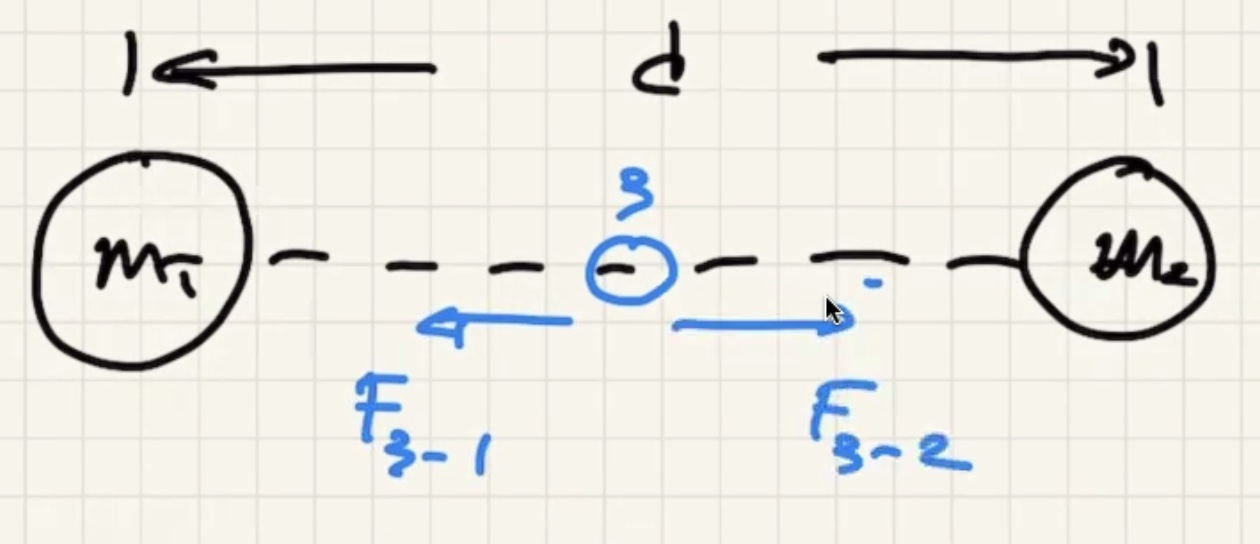 d
3
m₁ m₂
F₃₋₁ F₃₋₂